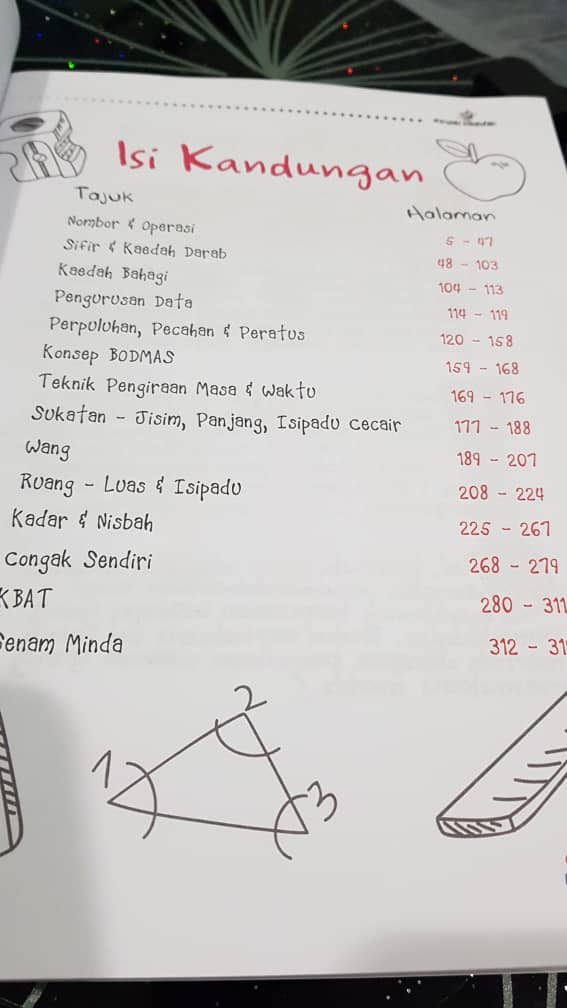 Isi Kandungan
Tajuk Halaman
Nombor & Operasi 5 - 47
Sifir & Kaedah Darab 48 - 103
Kaedah Bahagi 104 - 113
Pengurusan Data 114 - 119
Perpuluhan, Pecahan & Peratus 120 - 158
Konsep BODMAS 159 - 168
Teknik Pengiraan Masa & Waktu 169 - 176
Sukatan - Jisim, Panjang, Isipadu Cecair 177 - 188
Wang 189 - 207
Ruang - Luas & Isipadu 208 - 224
Kadar & Nisbah 225 - 267
Congak Sendiri 268 - 279
KBAT 280 - 311
Senam Minda 312 -
2
1
3